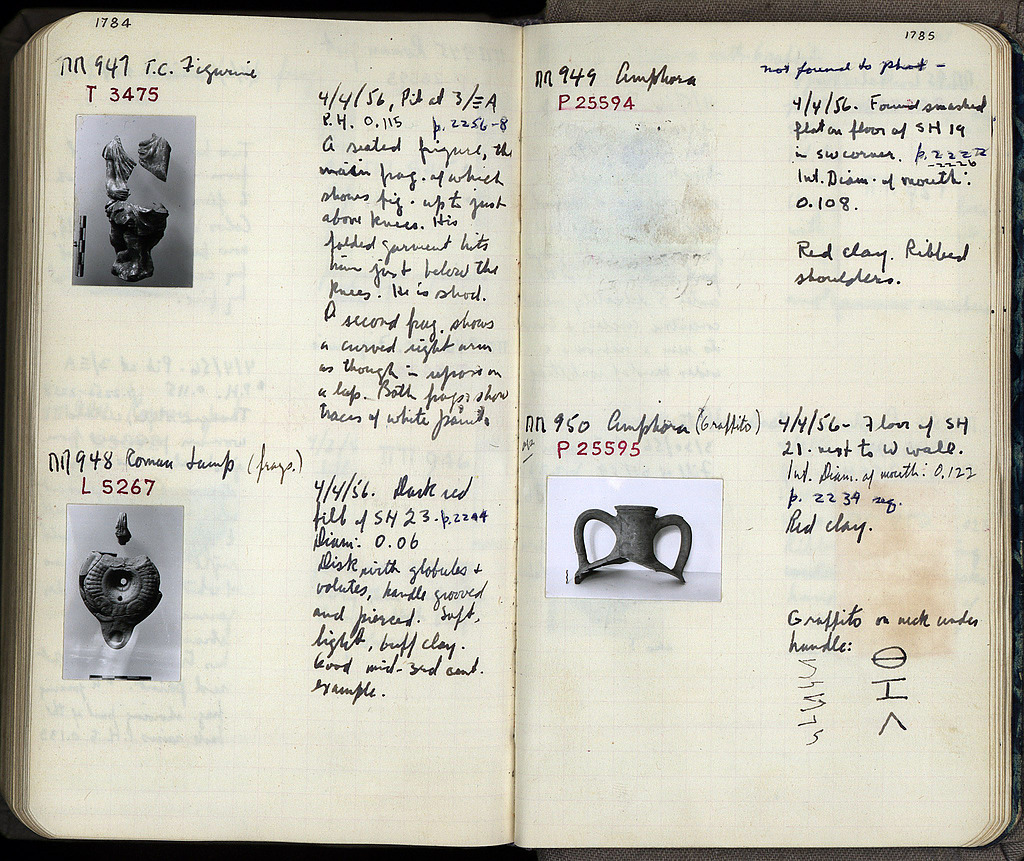 1784
ΠΠ 947 T.C. Figurine
T 3475
4/4/56, Pit at 3/ΞΑ
P.H. 0.115 p. 2256-8
A seated figure, the
main frag. of which
shows fig. up to just
above knees. His
folded garment hits
him just below the
knees. He is shod.
A second frag. shows
a curved right arm
as though in repose on
a lap. Both frags. show
traces of white paint.
ΠΠ 948 Roman Lamp (frags.)
L 5267
4/4/56. Dark red
fill of SH 23. p. 2244
Diam: 0.06
Disk with globules +
volutes, handle grooved
and pierced. Soft,
light, buff clay.
Good mid-3rd cent.
example.
1785
ΠΠ 949 Amphora
not found to phot -
P 25594
4/4/56. Found smashed
flat on floor of SH 19
in SW corner. p. 2222
-2226
Int. Diam. of mouth:
0.108.
Red clay. Ribbed
shoulders.
ΠΠ 950 Amphora (Graffito)
P 25595
4/4/56 - Floor of SH
21. next to W wall.
Int. Diam. of mouth: 0.122
p. 2234 sq.
Red clay.
Graffito on neck under
handle: